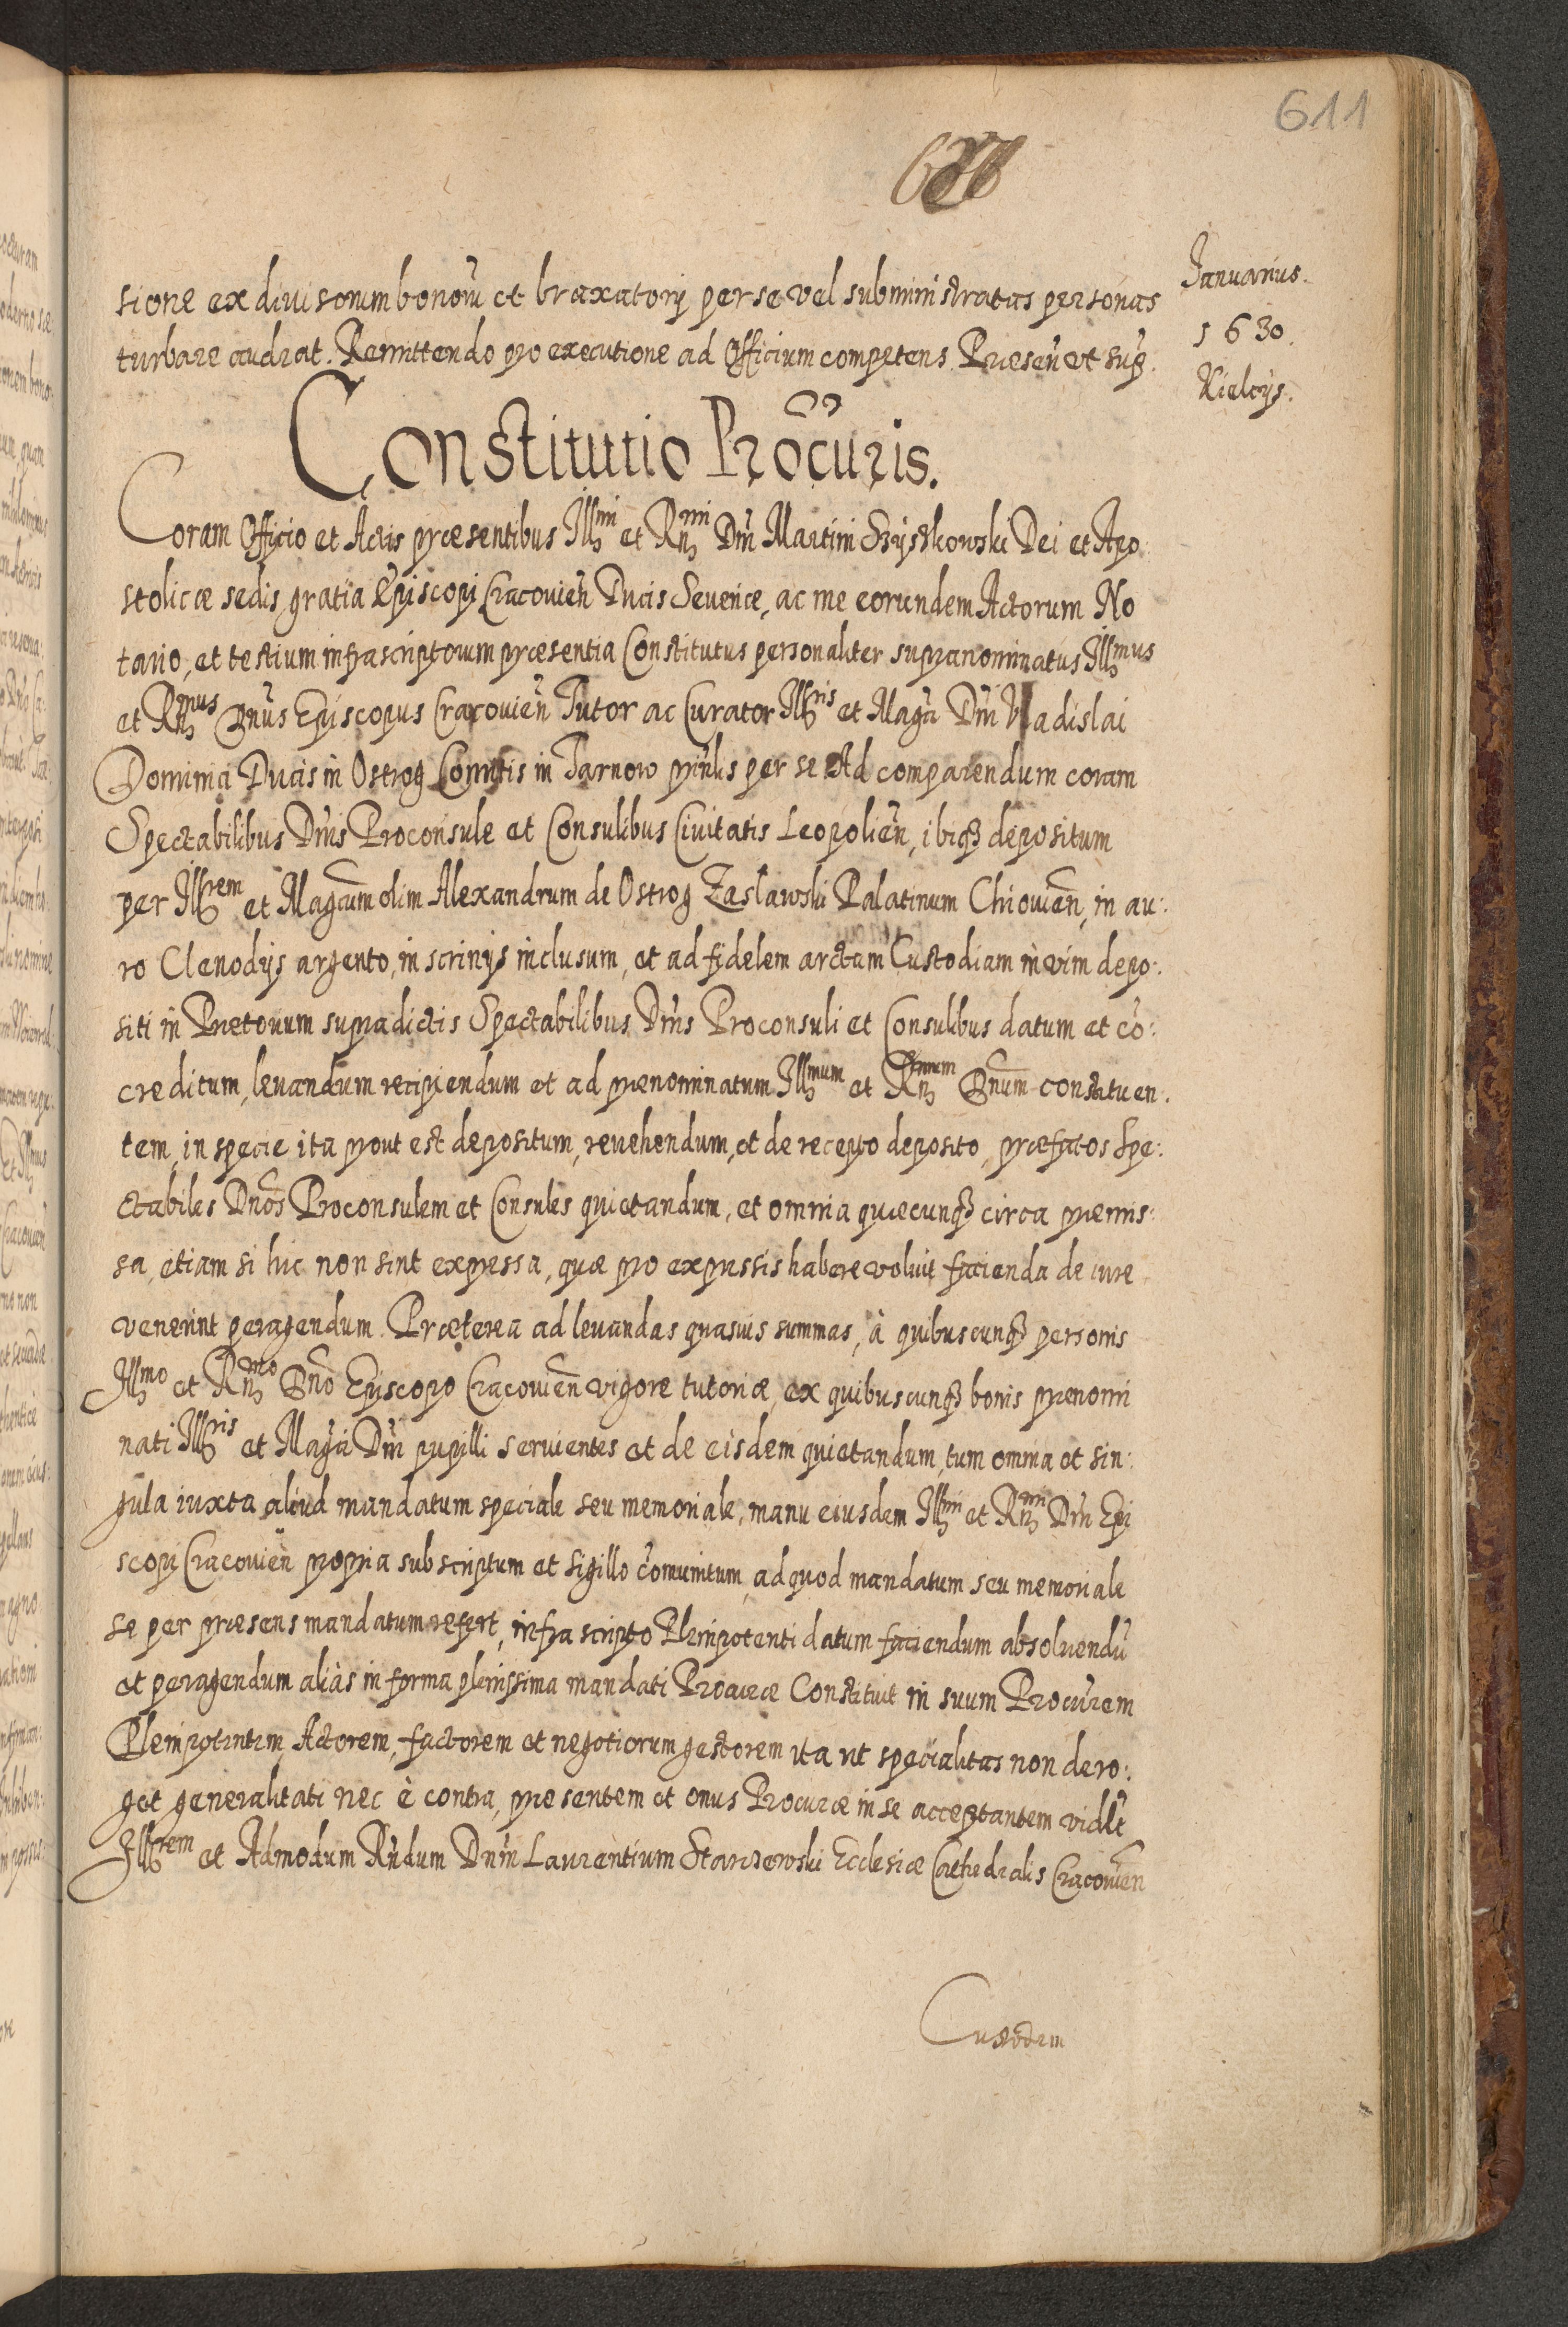 611
Januarius.
1630.
Kielcijs.
sione ex diuisorum bonorũ et braxatorij per se vel subministratas personas
turbare audeat. Remittendo pro executione ad Officium competens. Præsen̄ vt sup.
Constitutio Procũris.
Coram Officio et Actis præsentibus Illmi et Rnmi Dm̄ Martini Szyszkowski Dei et Apo
stolicæ sedis gratia Episcopi Cracouien̄ Ducis Seueriæ, ac me eorundem Actorum No
tario, et testium infrascriptorum præsentia Constitutus personaliter supranominatus Illmus
et Rnmus Dn̄us Episcopus Cracouien̄ Tutor ac Curator Illris et Magci Dm̄ Vladislai
Dominici Ducis in Ostrog Comitis in Tarnow prin̄lis per se Ad comparendum coram
Spectabilibus Dm̄s Proconsule et Consulibus Ciuitatis Leopolien̄, ibiqꝫ depositum
per Illrem et Magcum olim Alexandrum de Ostrog Zaslawski Palatinum Chiouien̄, in au:
ro Clenodijs argento, in scrinijs inclusum, et ad fidelem arctam Custodiam in vim depo:
siti in Prætorium supradictis Spectabilibus Dm̄s Proconsuli et Consulibus datum et cō:
creditum, leuandum recipiendum et ad prænominatum Illmum et Rnmum Dn̄um constituen:
tem, in specie ita prout est depositum, reuehendum, et de recepto deposito, præfatos Spe:
ctabiles Dn̄os Proconsulem et Consules quietandum, et omnia quæcunqꝫ circa præmis:
sa, etiam si hic non sint expressa, quæ pro expressis habere voluit facienda de iure
venerint peragendum. Præterea ad leuandas quasuis summas, à quibuscunqꝫ personis
Illmo et Rnmo Dn̄o Episcopo Cracouien̄ vigore tutoriæ, ex quibuscunqꝫ bonis prænomi
nati Illris et Magci Dm̄ pupilli seruientes et de eisdem quietandum, tum omnia et sin:
gula iuxta aliud mandatum speciale seu memoriale, manu eiusdem Illmi et Rnmi Dm̄ Epi
scopi Cracouien̄ propria subscriptum et sigillo cõmunitum, ad quod mandatum seu memoriale
se per præsens mandatum refert, infrascripto Plenipotenti datum faciendum absoluendũ
et peragendum aliàs in forma plenissima mandati Procuræ Constituit in suum Procũrem
Plenipotentem, Actorem, factorem et negotiorum gestorem ita vt specialitas non dero:
get generalitati nec è contra, præsentem et onus Procuræ in se acceptantem vidlt
Illrem et Admodum Rn̄dum Dn̄m Laurentium Starczewski Ecclesiæ Cathedralis Cracouien̄
Custodem